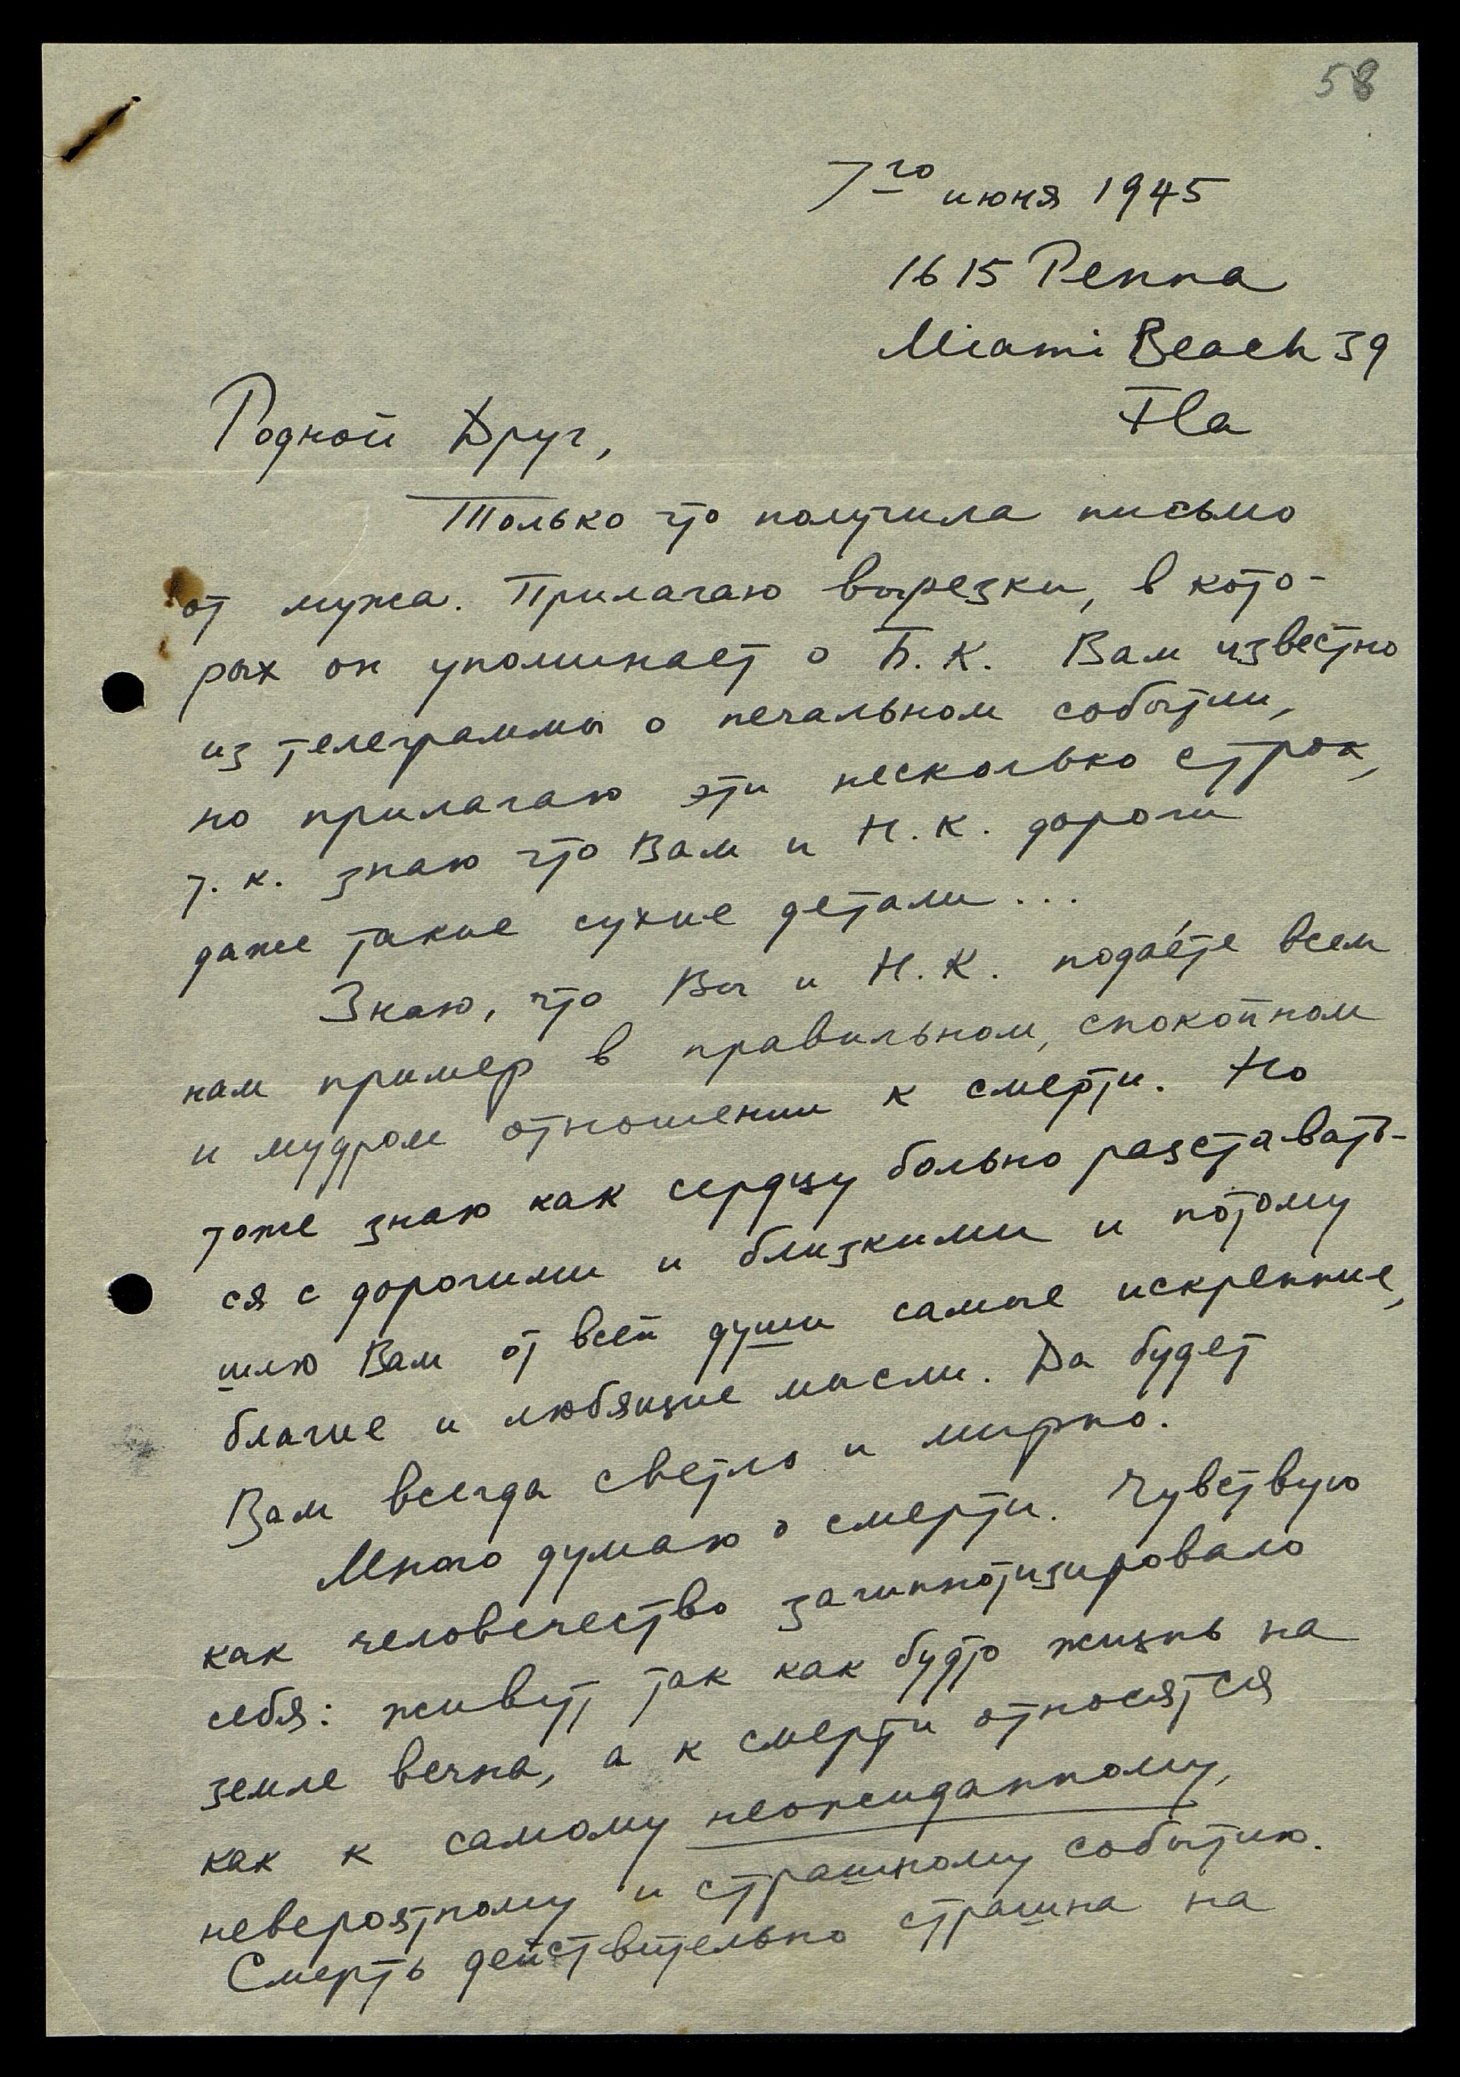 58
7го июня 1945
1615 Penna
Miami Beach 39
Fla
Родной Друг,
Только что получила письмо
от мужа. Прилагаю вырезки, в кото-
рых он упоминает о Б.К. Вам известно
из телеграммы о печальном событии,
но прилагаю эти несколько строк,
т.к. знаю что Вам и Н.К. дороги
даже такие сухие детали...
Знаю, что Вы и Н.К. подаёте всем
нам пример в правильном, спокойном
и мудром отношении к смерти. Но
тоже знаю как сердцу больно разставать-
ся с дорогими и близкими и потому
шлю Вам от всей души самые искренние,
благие и любящие мысли. Да будет
Вам всегда светло и мирно.
Много думаю о смерти. Чувствую
как человечество загипнотизировало
себя: живут так как будто жизнь на
земле вечна, а к смерти относятся
как к самому неожиданному,
невероятному и страшному событию.
Смерть действительно страшна на